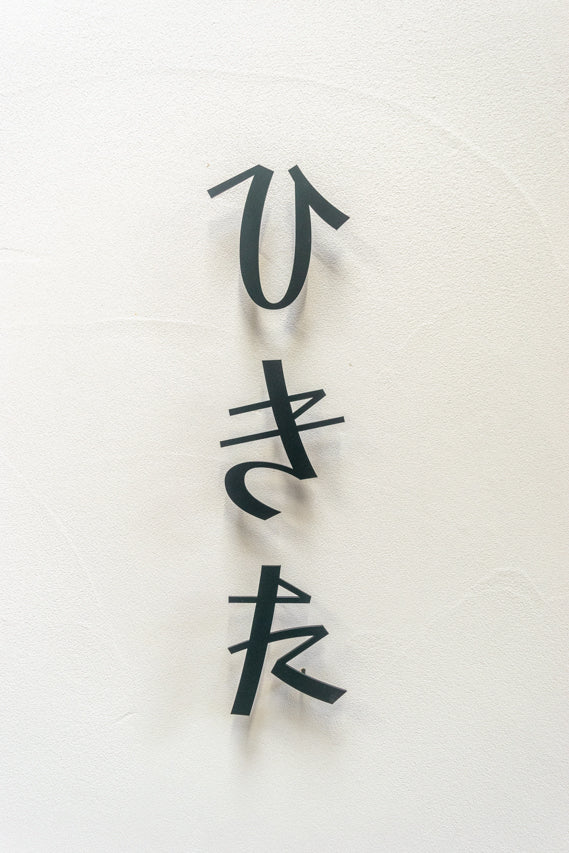 ひきた